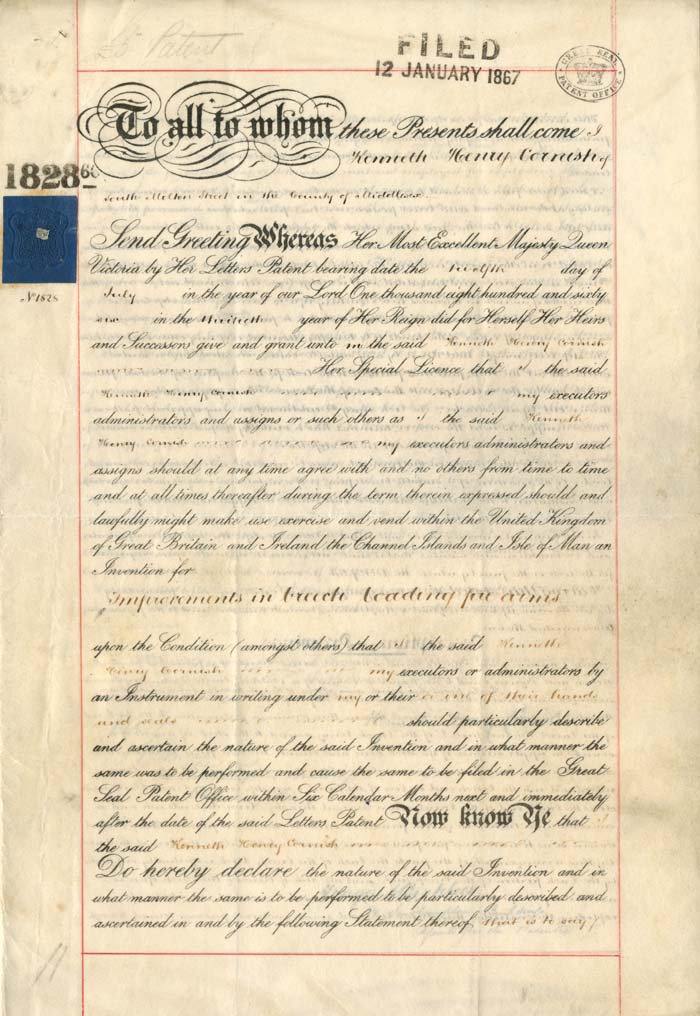 Lrs Patent
FILED
12 JANUARY 1867
GREAT SEAL
PATENT OFFICE
To all to whom these Presents shall come I
Kenneth Henry Cornish of
1828 66
South Molton Street in the County of Middlesex
Send Greeting Whereas Her Most Excellent Majesty Queen
Victoria by Her Letters Patent bearing date the twelfth day of
No 1828
July in the year of our Lord One thousand eight hundred and sixty
six in the thirtieth year of Her Reign did for Herself Her Heirs
and Successors give and grant unto me the said Kenneth Henry Cornish
Her Special Licence that I the said
Kenneth Henry Cornish my executors
administrators and assigns or such others as I the said Kenneth
Henry Cornish my executors administrators and
assigns should at any time agree with and no others from time to time
and at all times thereafter during the term therein expressed should and
lawfully might make use exercise and vend within the United Kingdom
of Great Britain and Ireland the Channel Islands and Isle of Man an
Invention for
Improvements in breech loading fire arms
upon the Condition (amongst others) that I the said Kenneth
Henry Cornish my executors or administrators by
an Instrument in writing under my or their or one of their hands
and seals should particularly describe
and ascertain the nature of the said Invention and in what manner the
same was to be performed and cause the same to be filed in the Great
Seal Patent Office within Six Calendar Months next and immediately
after the date of the said Letters Patent Now know Ye that I
the said Kenneth Henry Cornish
Do hereby declare the nature of the said Invention and in
what manner the same is to be performed to be particularly described and
ascertained in and by the following Statement thereof that is to say